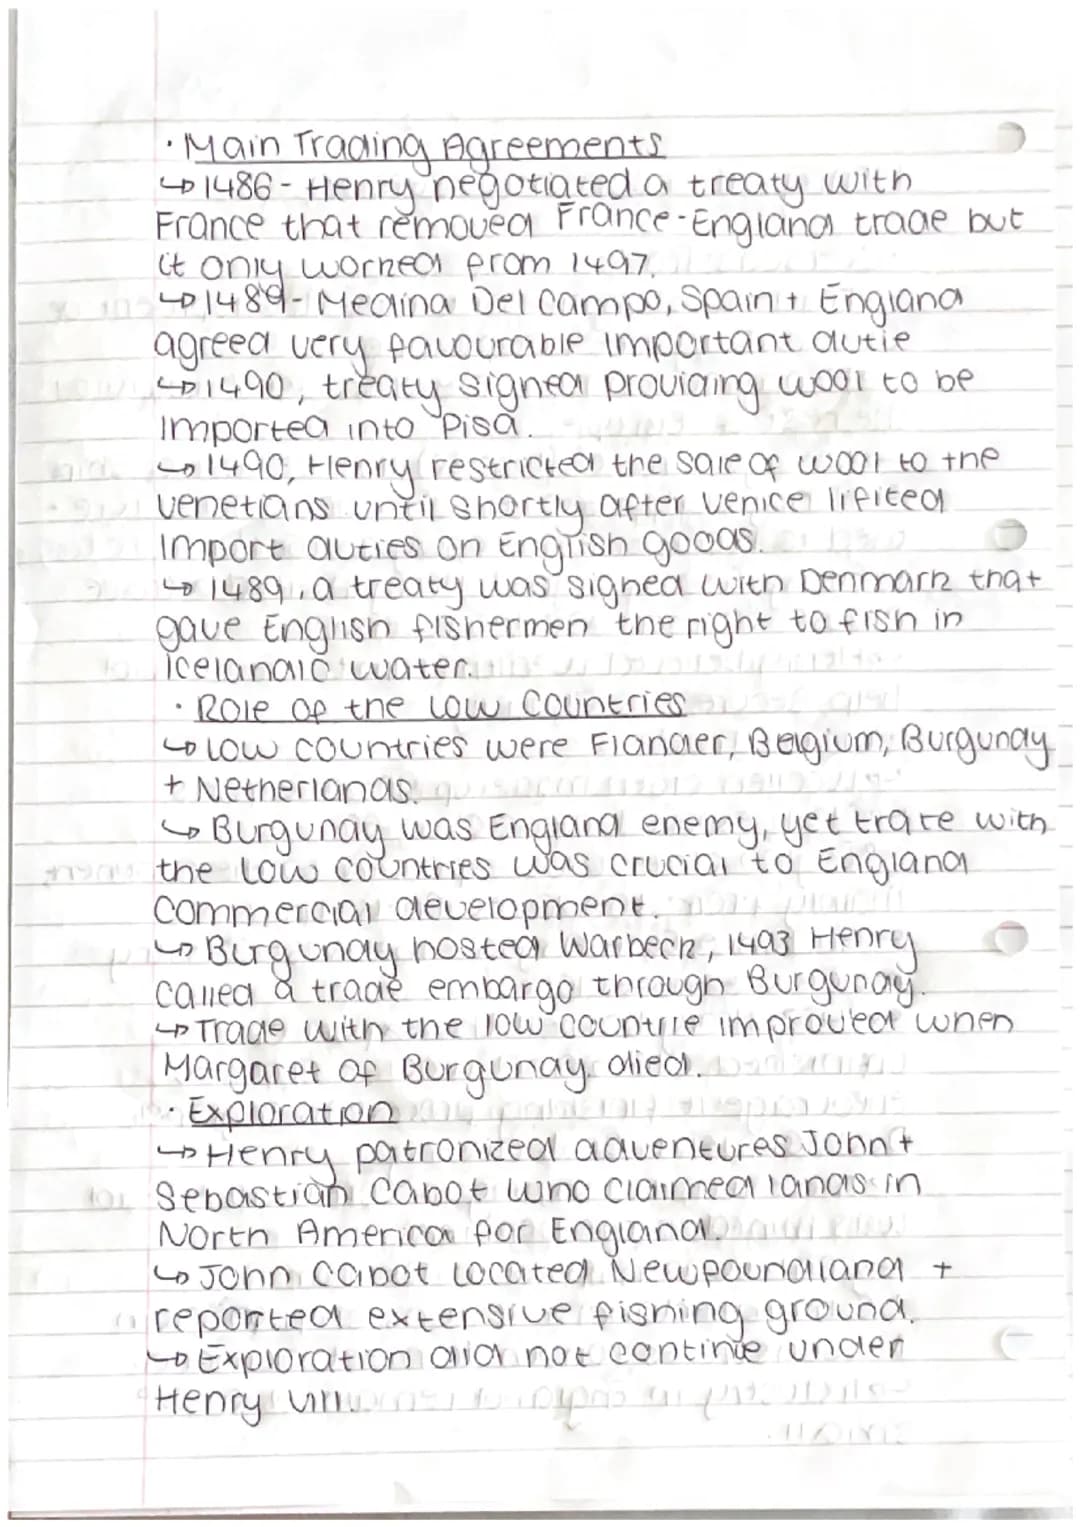 · Main Trading Agreements
↳ 1486 - Henry negotiated a treaty with
France that removed France-England trade but
it only worked from 1497.
↳ 1489 - Medina Del Campo, Spain + England
agreed very favourable important dutie
↳ 1490, treaty signed providing wool to be
imported into Pisa.
↳ 1490, Henry restricted the sale of wool to the
venetians until shortly after venice lifited
import duties on English goods.
↳ 1489, a treaty was signed with Denmark that
gave English fishermen the right to fish in
icelandic water.
· Role of the Low Countries
↳ Low countries were Flander, Belgium, Burgundy
+ Netherlands.
↳ Burgunay was England enemy, yet trare with
the Low countries was crucial to England
commercial development.
↳ Burgunay hosted Warbeck, 1493 Henry
called a trade embargo through Burgunay.
↳ Trade with the low countrie improved when
Margaret of Burgunay died.
· Exploration
↳ Henry patronized adventures John +
Sebastian Cabot who claimed lands in
North America for England.
↳ John Cabot located Newfoundland +
reported extensive fishing ground.
↳ Exploration did not continue under
Henry VIII.